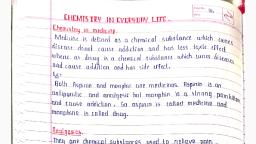 CHEMISTRY IN EVERYDAY LIFE -
Chemistry in medicine.
Medicine is defined as a chemical substance which cures
disease donot cause addiction and has less toxic effect
where as drug is a chemical substance which cures diseases
and cause addiction and has side effect.
Eg:
Both Aspirin and morphine are medicines. Aspirin is an
antipyretic and analgesic but morphine is a strong painkiller
and cause addiction. So aspirin is called medicine and
morphine is called drug.
Analgesics:
They are chemical substances used to relieve pain.